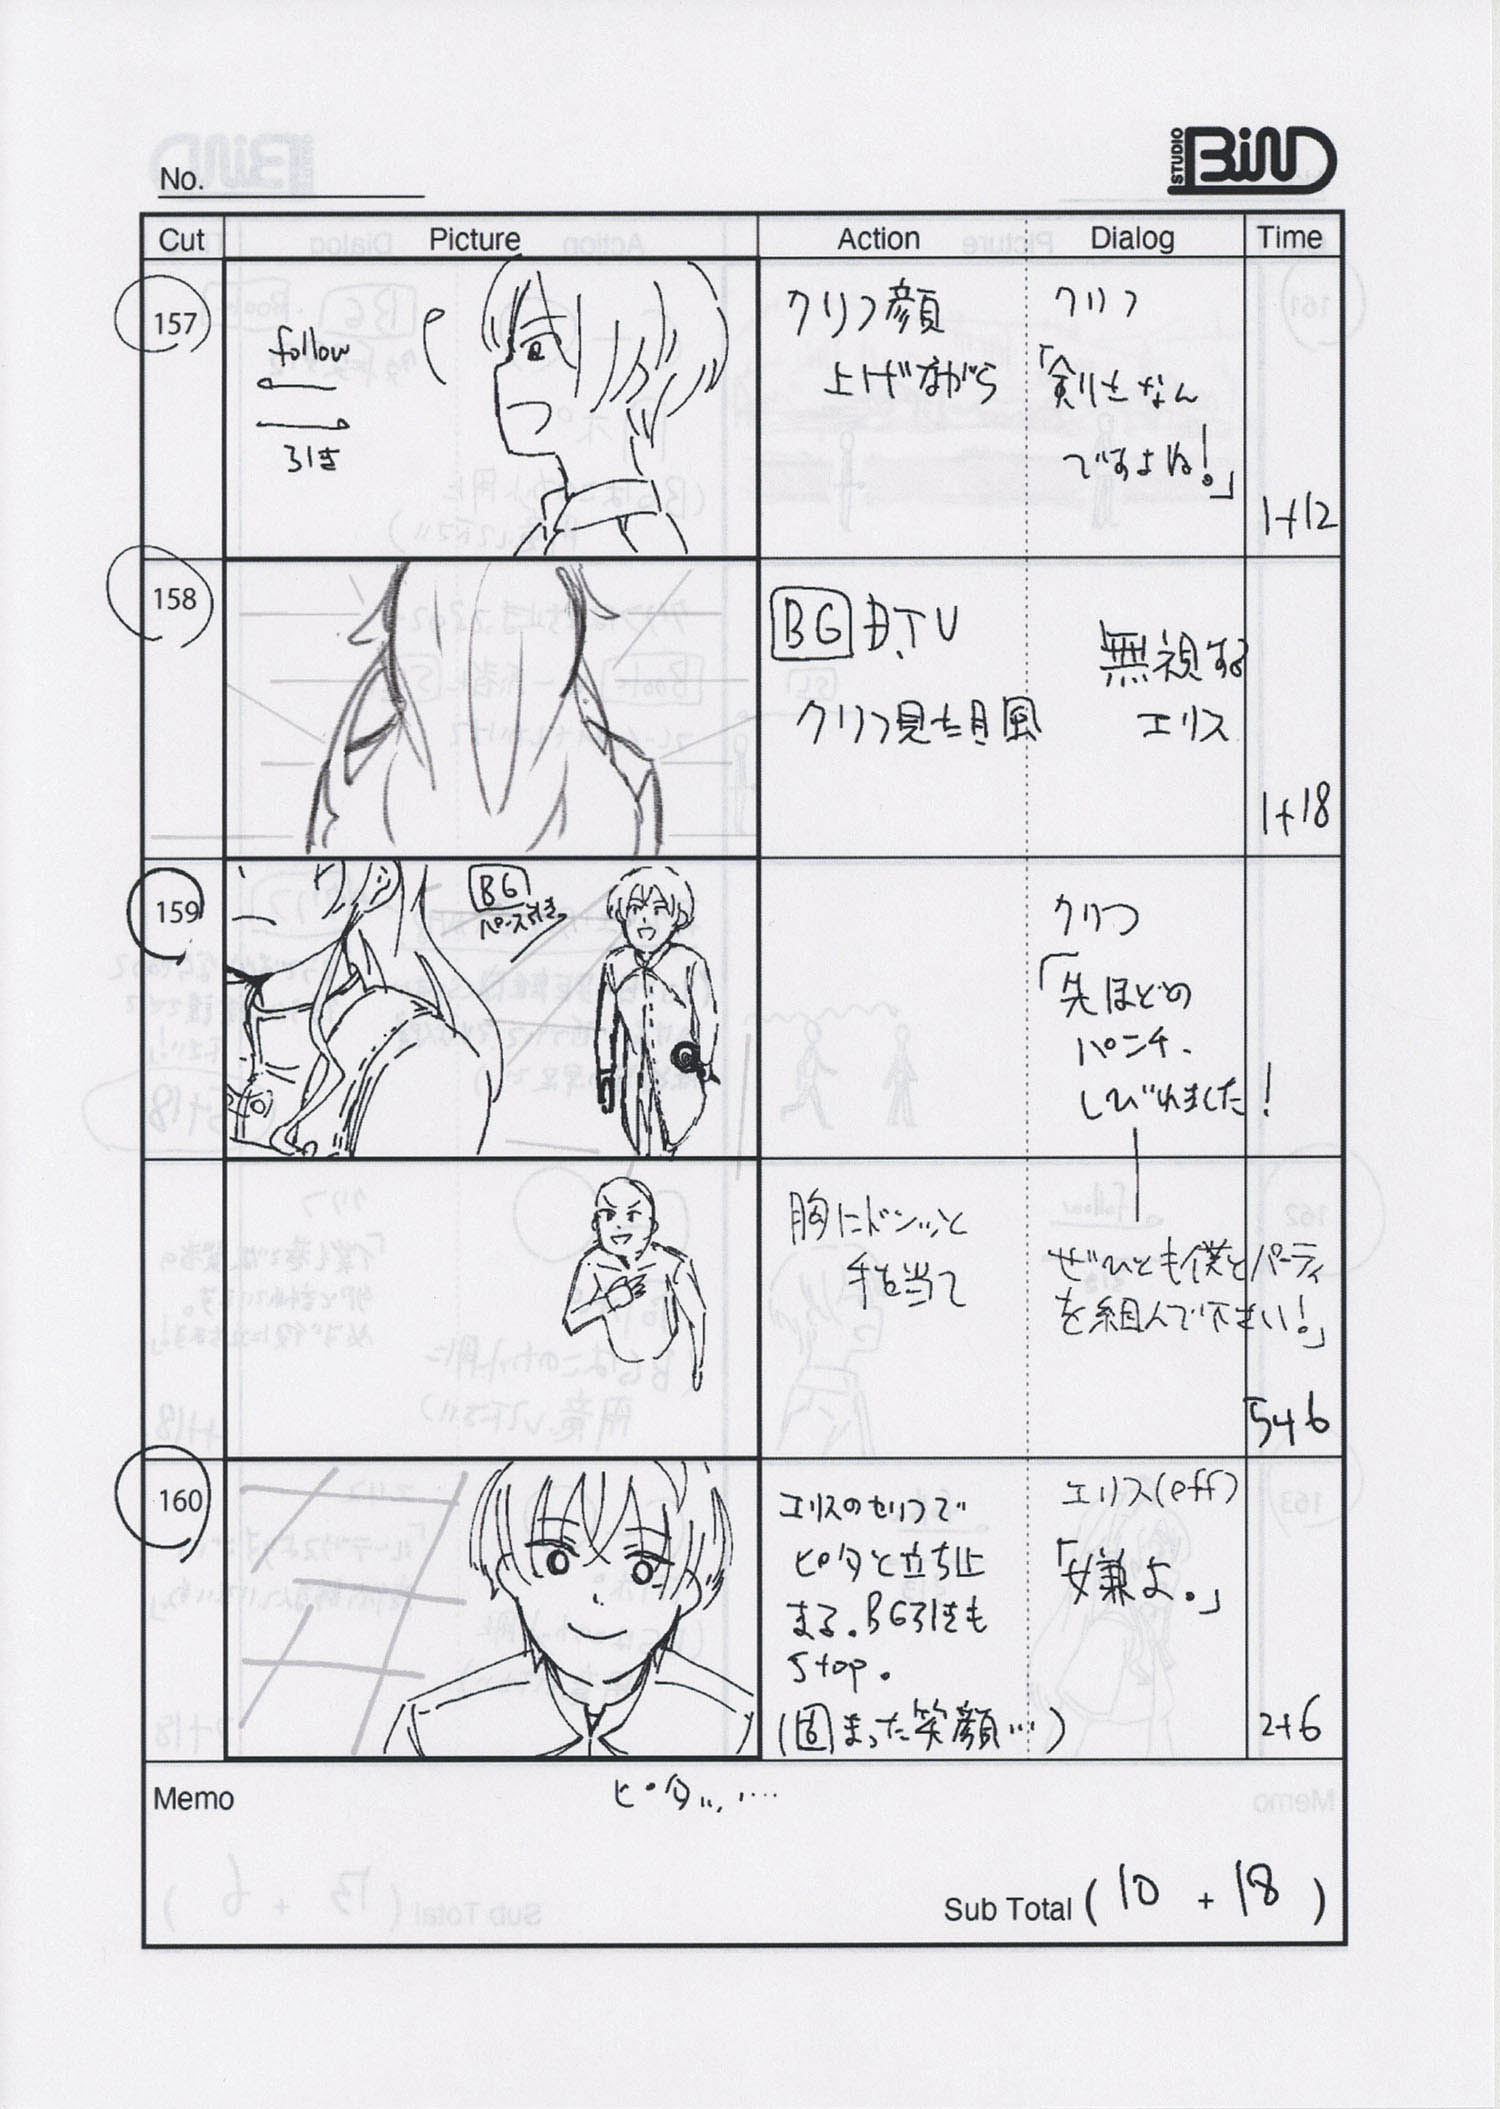 No.
STUDIO BiND
Cut Picture Action Dialog Time
157
follow
引き
クリフ顔
上げながら
クリフ
「剣士なん
ですよね!」
1+12
158
BG B.T.U
クリフ見た目風
無視する
エリス
1+18
159
BG
クリフ
「先ほどの
パンチ、
しびれました!
胸にドンッと
手を当て
ぜひとも僕とパーティ
を組んで下さい!」
5+6
160
エリスのセリフで
ピタと立ち止
まる。BG引きも
stop。
(固まった笑顔…)
エリス(eff)
「嫌よ。」
2+6
Memo
ピタッ…
Sub Total ( 10 + 18 )